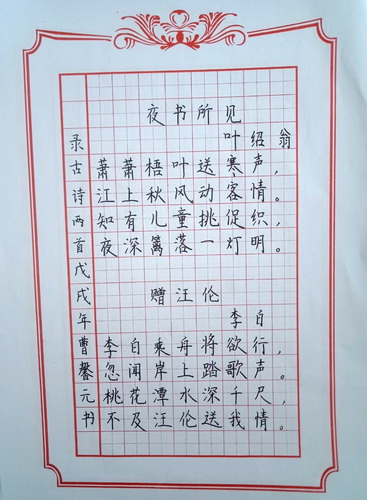 夜书所见
叶绍翁
萧萧梧叶送寒声，
江上秋风动客情。
知有儿童挑促织，
夜深篱落一灯明。
赠汪伦
李白
李白乘舟将欲行，
忽闻岸上踏歌声。
桃花潭水深千尺，
不及汪伦送我情。
录古诗两首戊戌年曹馨元书